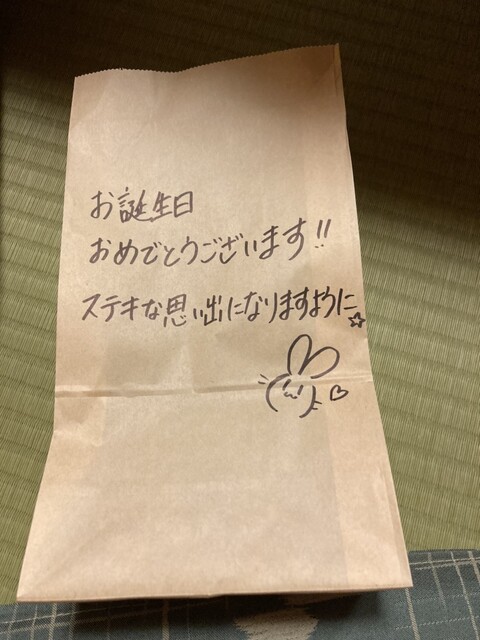 お誕生日
おめでとうございます!!
ステキな思い出になりますように☆